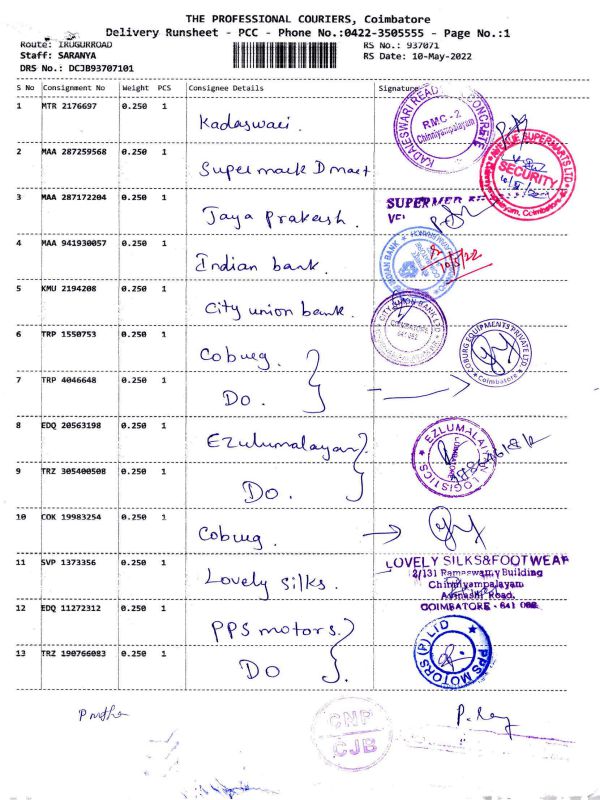 THE PROFESSIONAL COURIERS, Coimbatore
Delivery Runsheet - PCC - Phone No.:0422-3505555 - Page No.:1
Route: IRUGURROAD RS No.: 937071
Staff: SARANYA RS Date: 10-May-2022
DRS No.: DCJB93707101
S No Consignment No Weight PCS Consignee Details Signature
1 MTR 2176697 0.250 1 Kadaswari.
KADAIESWARI READY CONCRETE
RMC-2
Chinniyampalayam
2 MAA 287259568 0.250 1 Supermark Dmart
AVENUE SUPERMARTS LTD
SECURITY
Coimbatore
3 MAA 287172204 0.250 1 Jaya Prakash.
4 MAA 941930057 0.250 1 Indian bank.
INDIAN BANK
10/5/22
5 KMU 2194208 0.250 1 City union bank.
CITY UNION BANK LTD
COIMBATORE
641 062
6 TRP 1550753 0.250 1 Coburg.
COBURG EQUIPMENTS PRIVATE LTD
Coimbatore
7 TRP 4046648 0.250 1 Do.
8 EDQ 20563198 0.250 1 Ezulumalayan
EZLUMALAIYAN LOGISTICS
COIMBATORE
9 TRZ 305400508 0.250 1 Do.
10 COK 19983254 0.250 1 Coburg.
11 SVP 1373356 0.250 1 Lovely silks.
LOVELY SILKS&FOOTWEAR
2/131 Ramaswamy Building
Chinniyampalayam
Avinashi Road.
COIMBATORE - 641 062
12 EDQ 11272312 0.250 1 PPS motors.
PPS MOTORS (P) LTD
13 TRZ 190766083 0.250 1 Do
CNP
CJB